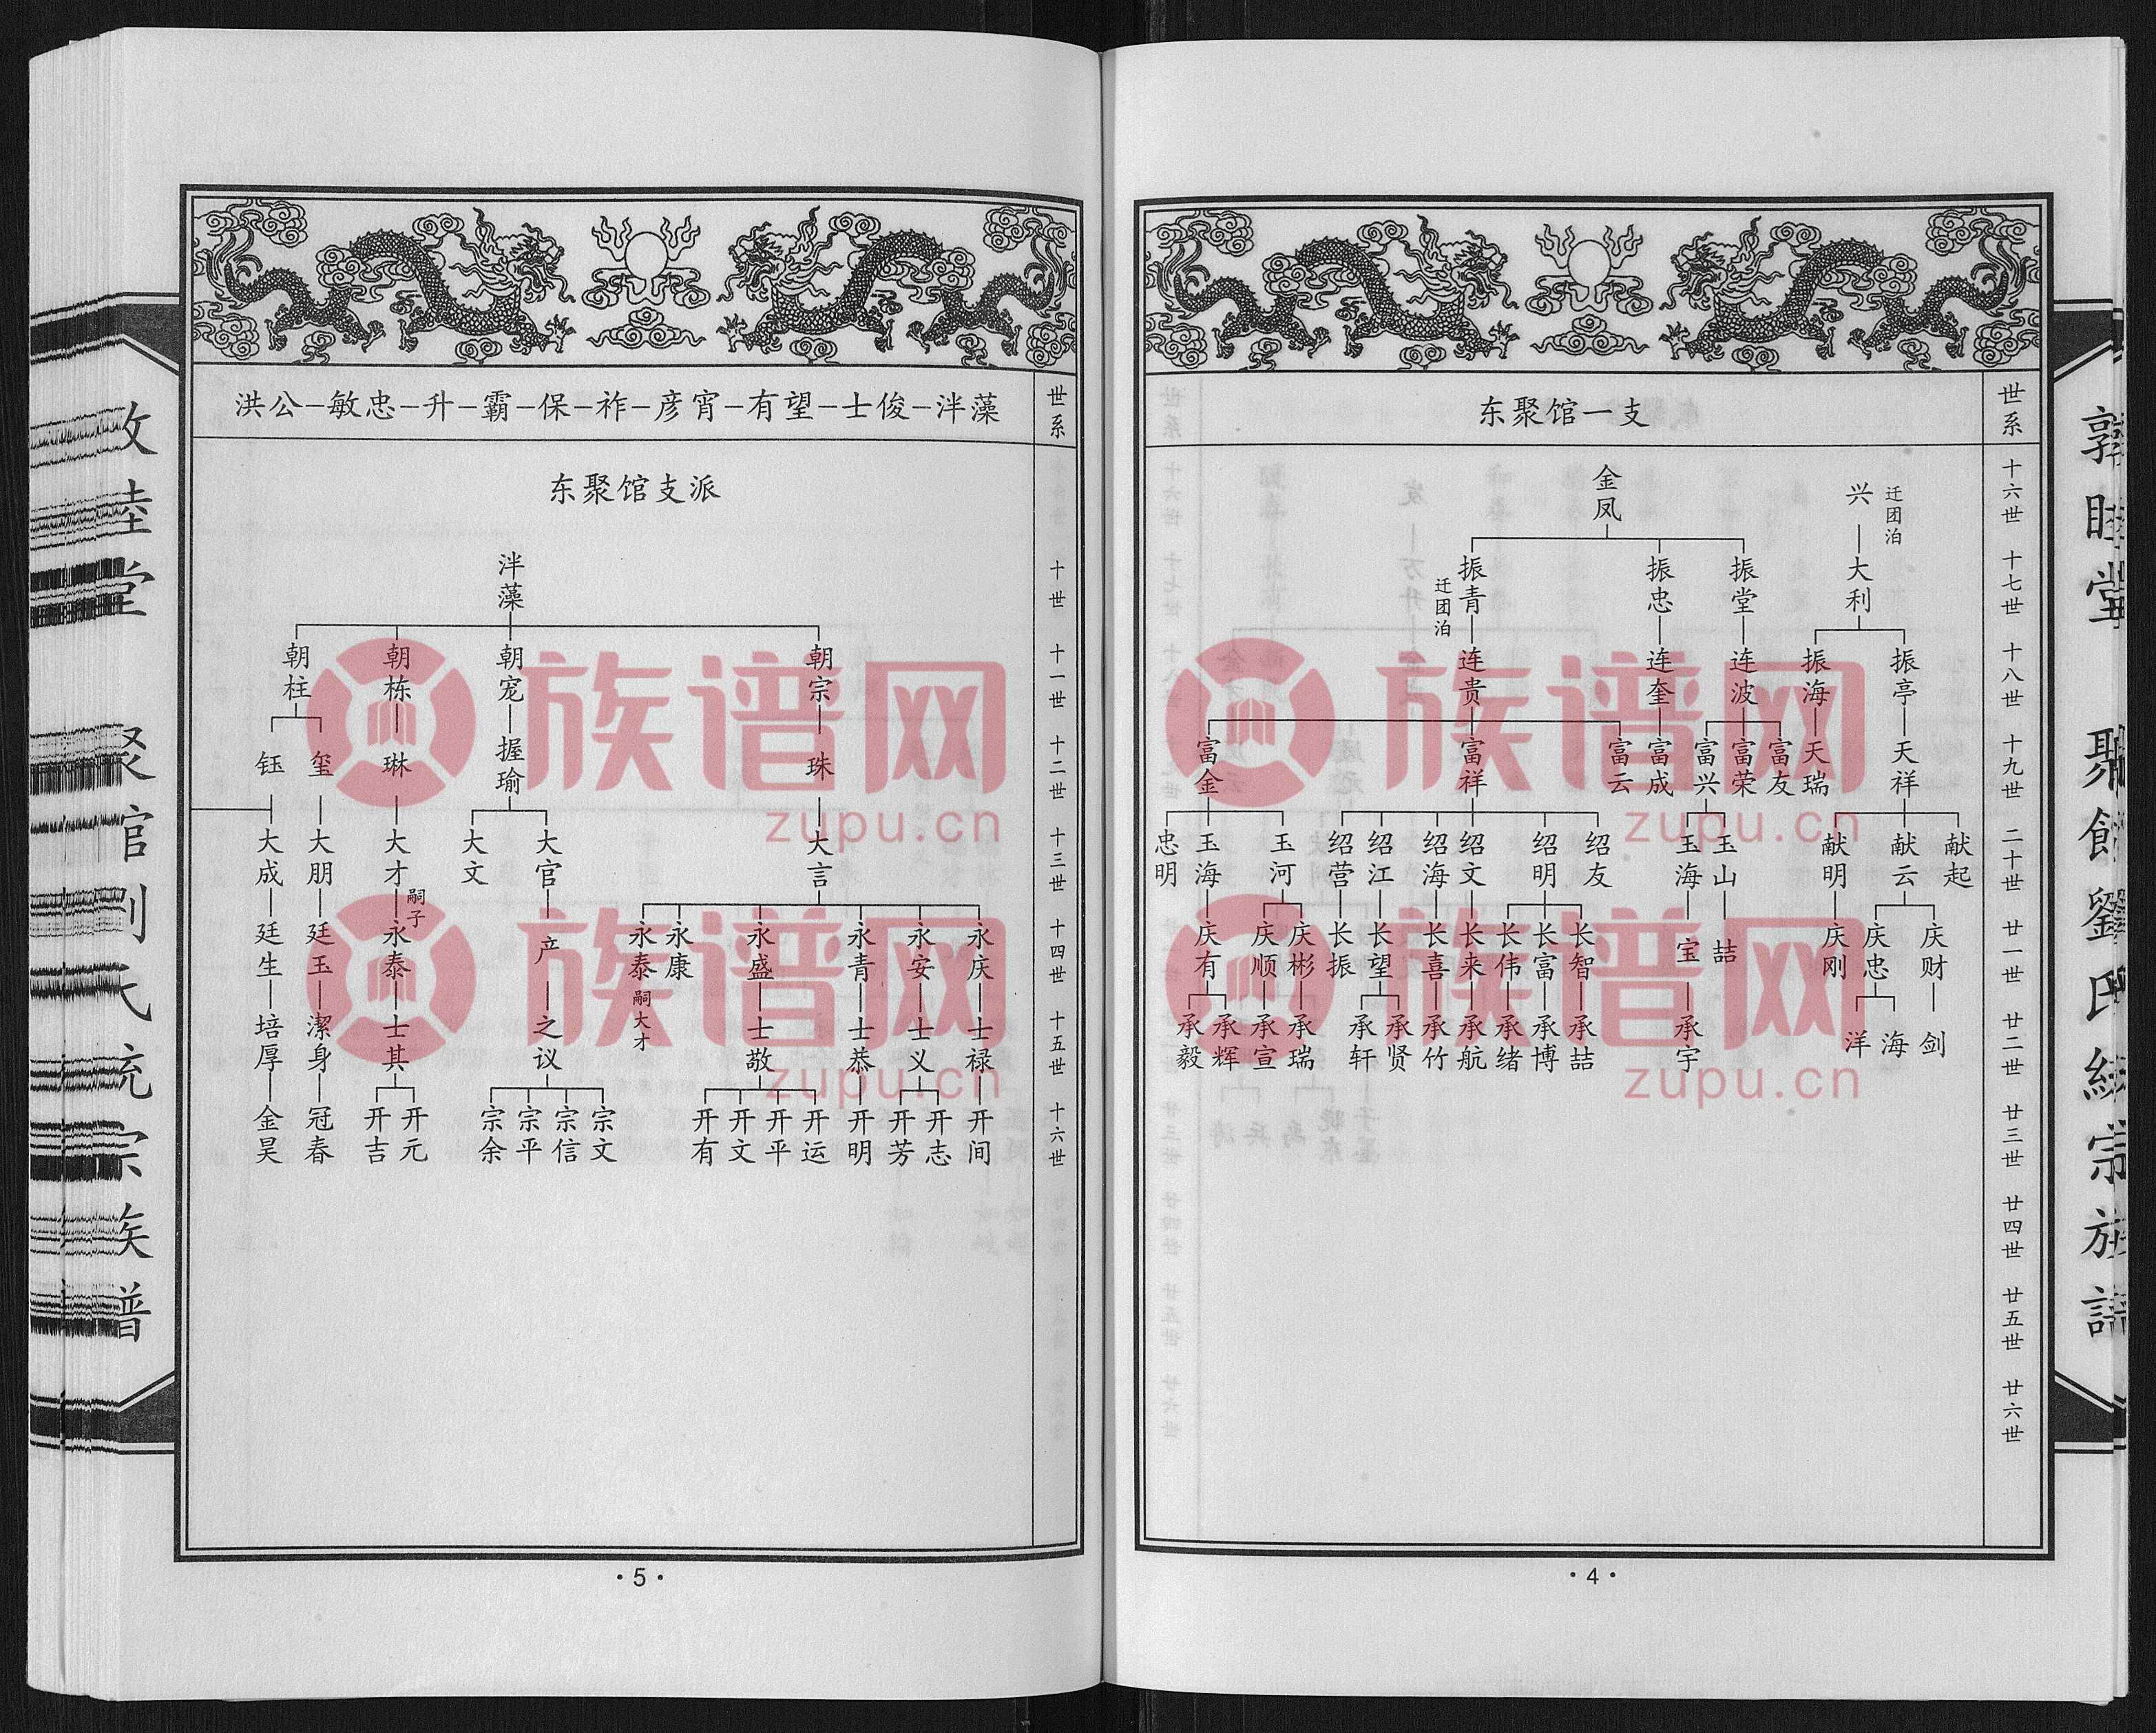 敦睦堂 聚馆劉氏統宗族譜
东聚馆一支
世系
十六世 十七世 十八世 十九世 二十世 廿一世 廿二世 廿三世 廿四世 廿五世 廿六世
兴 迁团泊 金凤
大利 振堂 振忠 振青 迁团泊
振亭 振海 连波 连奎 连贵
天祥 天瑞 富友 富荣 富兴 富成 富云 富祥 富金
献起 献云 献明 玉山 玉海 绍友 绍明 绍文 绍海 绍江 绍营 玉河 玉海 忠明
庆财 庆忠 庆刚 喆 宝 长智 长富 长伟 长来 长喜 长望 长振 庆彬 庆顺 庆有
剑 海 洋 承宇 承喆 承博 承绪 承航 承竹 承贤 承轩 承瑞 承宣 承辉 承毅
·4·
洪公–敏忠–升–霸–保–祚–彦宵–有望–士俊–泮藻
世系
东聚馆支派
十世 十一世 十二世 十三世 十四世 十五世 十六世
泮藻
朝宗 朝宠 朝栋 朝柱
珠 握瑜 琳 玺 钰
大言 大官 大文 大才 大朋 大成
永庆 永安 永青 永盛 永康 永泰 嗣大才 产 嗣子 永泰 廷玉 廷生
士禄 士义 士恭 士敬 之议 士其 潔身 培厚
开间 开志 开芳 开明 开运 开平 开文 开有 宗文 宗信 宗平 宗余 开元 开吉 冠春 金昊
·5·
族谱网
zupu.cn
族谱网
zupu.cn
族谱网
zupu.cn
族谱网
zupu.cn